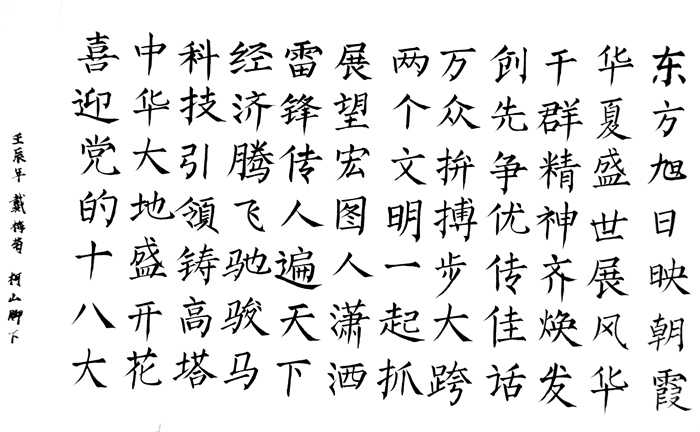 东方旭日映朝霞
华夏盛世展风华
干群精神齐焕发
创先争优传佳话
万众拚搏步大跨
两个文明一起抓
展望宏图人潇洒
雷锋传人遍天下
经济腾飞驰骏马
科技引领铸高塔
中华大地盛开花
喜迎党的十八大
壬辰年 戴梅菊 柯山脚下